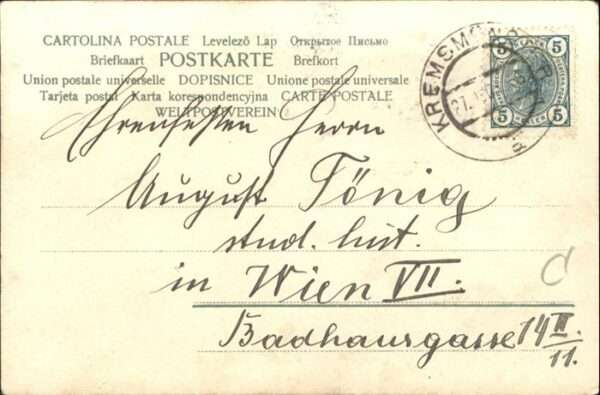 CARTOLINA POSTALE Levelező Lap Открытое Письмо
Briefkaart POSTKARTE Brefkort
Union postale universelle DOPISNICE Unione postale universale
Tarjeta postal Karta korespondencyjna CARTE POSTALE
WELTPOSTVEREIN
KREMSMÜNSTER
27.
5 5
5 5
Ehrenfesten Herrn
August König
stud. hist.
in Wien VII.
Badhausgasse 14 II/11.
C